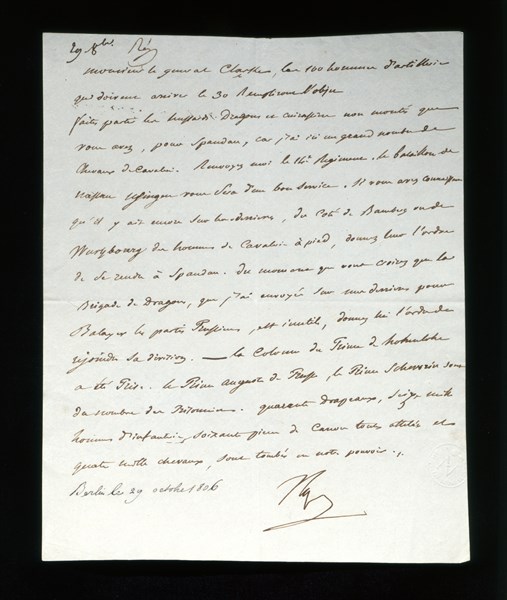 29 8bre Rép
Monsieur le general Clarke, les 100 hommes d'artillerie
qui doivent arriver le 30 Rempliront l'objet
faites partir les hussards Dragons et cuirassiers non montés que
vous avez, pour Spandau, car j'ai ici un grand nombre de
Chevaux de Cavalerie. Renvoyez moi le 14e Regiment. le bataillon de
Nassau Usingen vous sera d'un bon service. Si vous avez connaissance
qu'il y ait encore sur les derrieres, du coté de Bamberg ou de
Wurzbourg des hommes de Cavalerie à pied, donnez leur l'ordre
de se rendre à Spandau. Du moment que vous croirez que la
Brigade de Dragons, que j'ai envoyée sur mes derrieres pour
Balayer les partis Prussiens, est inutile, donnez lui l'ordre de
rejoindre sa division. — la Colonne du Prince de hohenlohe
a été Prise. le Prince auguste de Prusse, le Prince Schwerin sont
du nombre des Prisonniers. quarante drapeaux, seize mille
hommes d'infanterie, soixante pieces de Canon toutes attelées et
quatre mille chevaux, sont tombés en notre pouvoir.
Berlin le 29 octobre 1806
Np